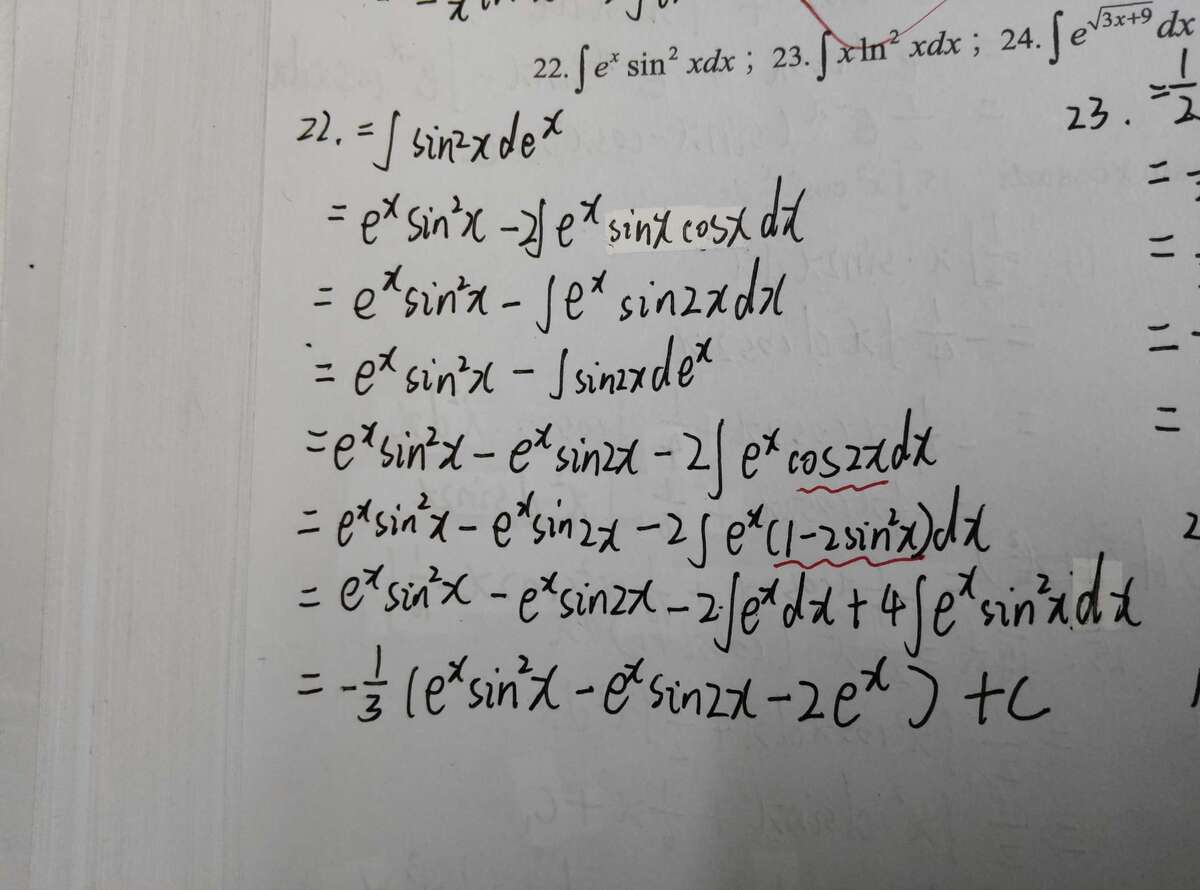 22. ∫ eˣ sin² xdx ; 23. ∫ x ln² xdx ; 24. ∫ e^√(3x+9) dx
22. = ∫ sin²x deˣ
23. = 1/2
= eˣ sin²x - 2∫ eˣ sinx cosx dx
= eˣ sin²x - ∫ eˣ sin2x dx
= eˣ sin²x - ∫ sin2x deˣ
= eˣ sin²x - eˣ sin2x - 2∫ eˣ cos2x dx
= eˣ sin²x - eˣ sin2x - 2∫ eˣ(1-2sin²x)dx
= eˣ sin²x - eˣ sin2x - 2∫ eˣ dx + 4∫ eˣ sin²x dx
= -1/3 (eˣ sin²x - eˣ sin2x - 2eˣ) + C